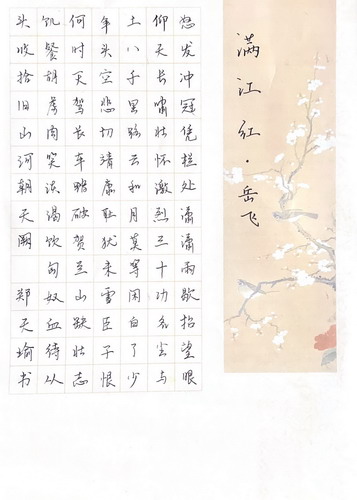 满江红·岳飞
怒发冲冠凭栏处潇潇雨歇抬望眼
仰天长啸壮怀激烈三十功名尘与
土八千里路云和月莫等闲白了少
年头空悲切靖康耻犹未雪臣子恨
何时灭驾长车踏破贺兰山缺壮志
饥餐胡虏肉笑谈渴饮匈奴血待从
头收拾旧山河朝天阙 郑天瑜书